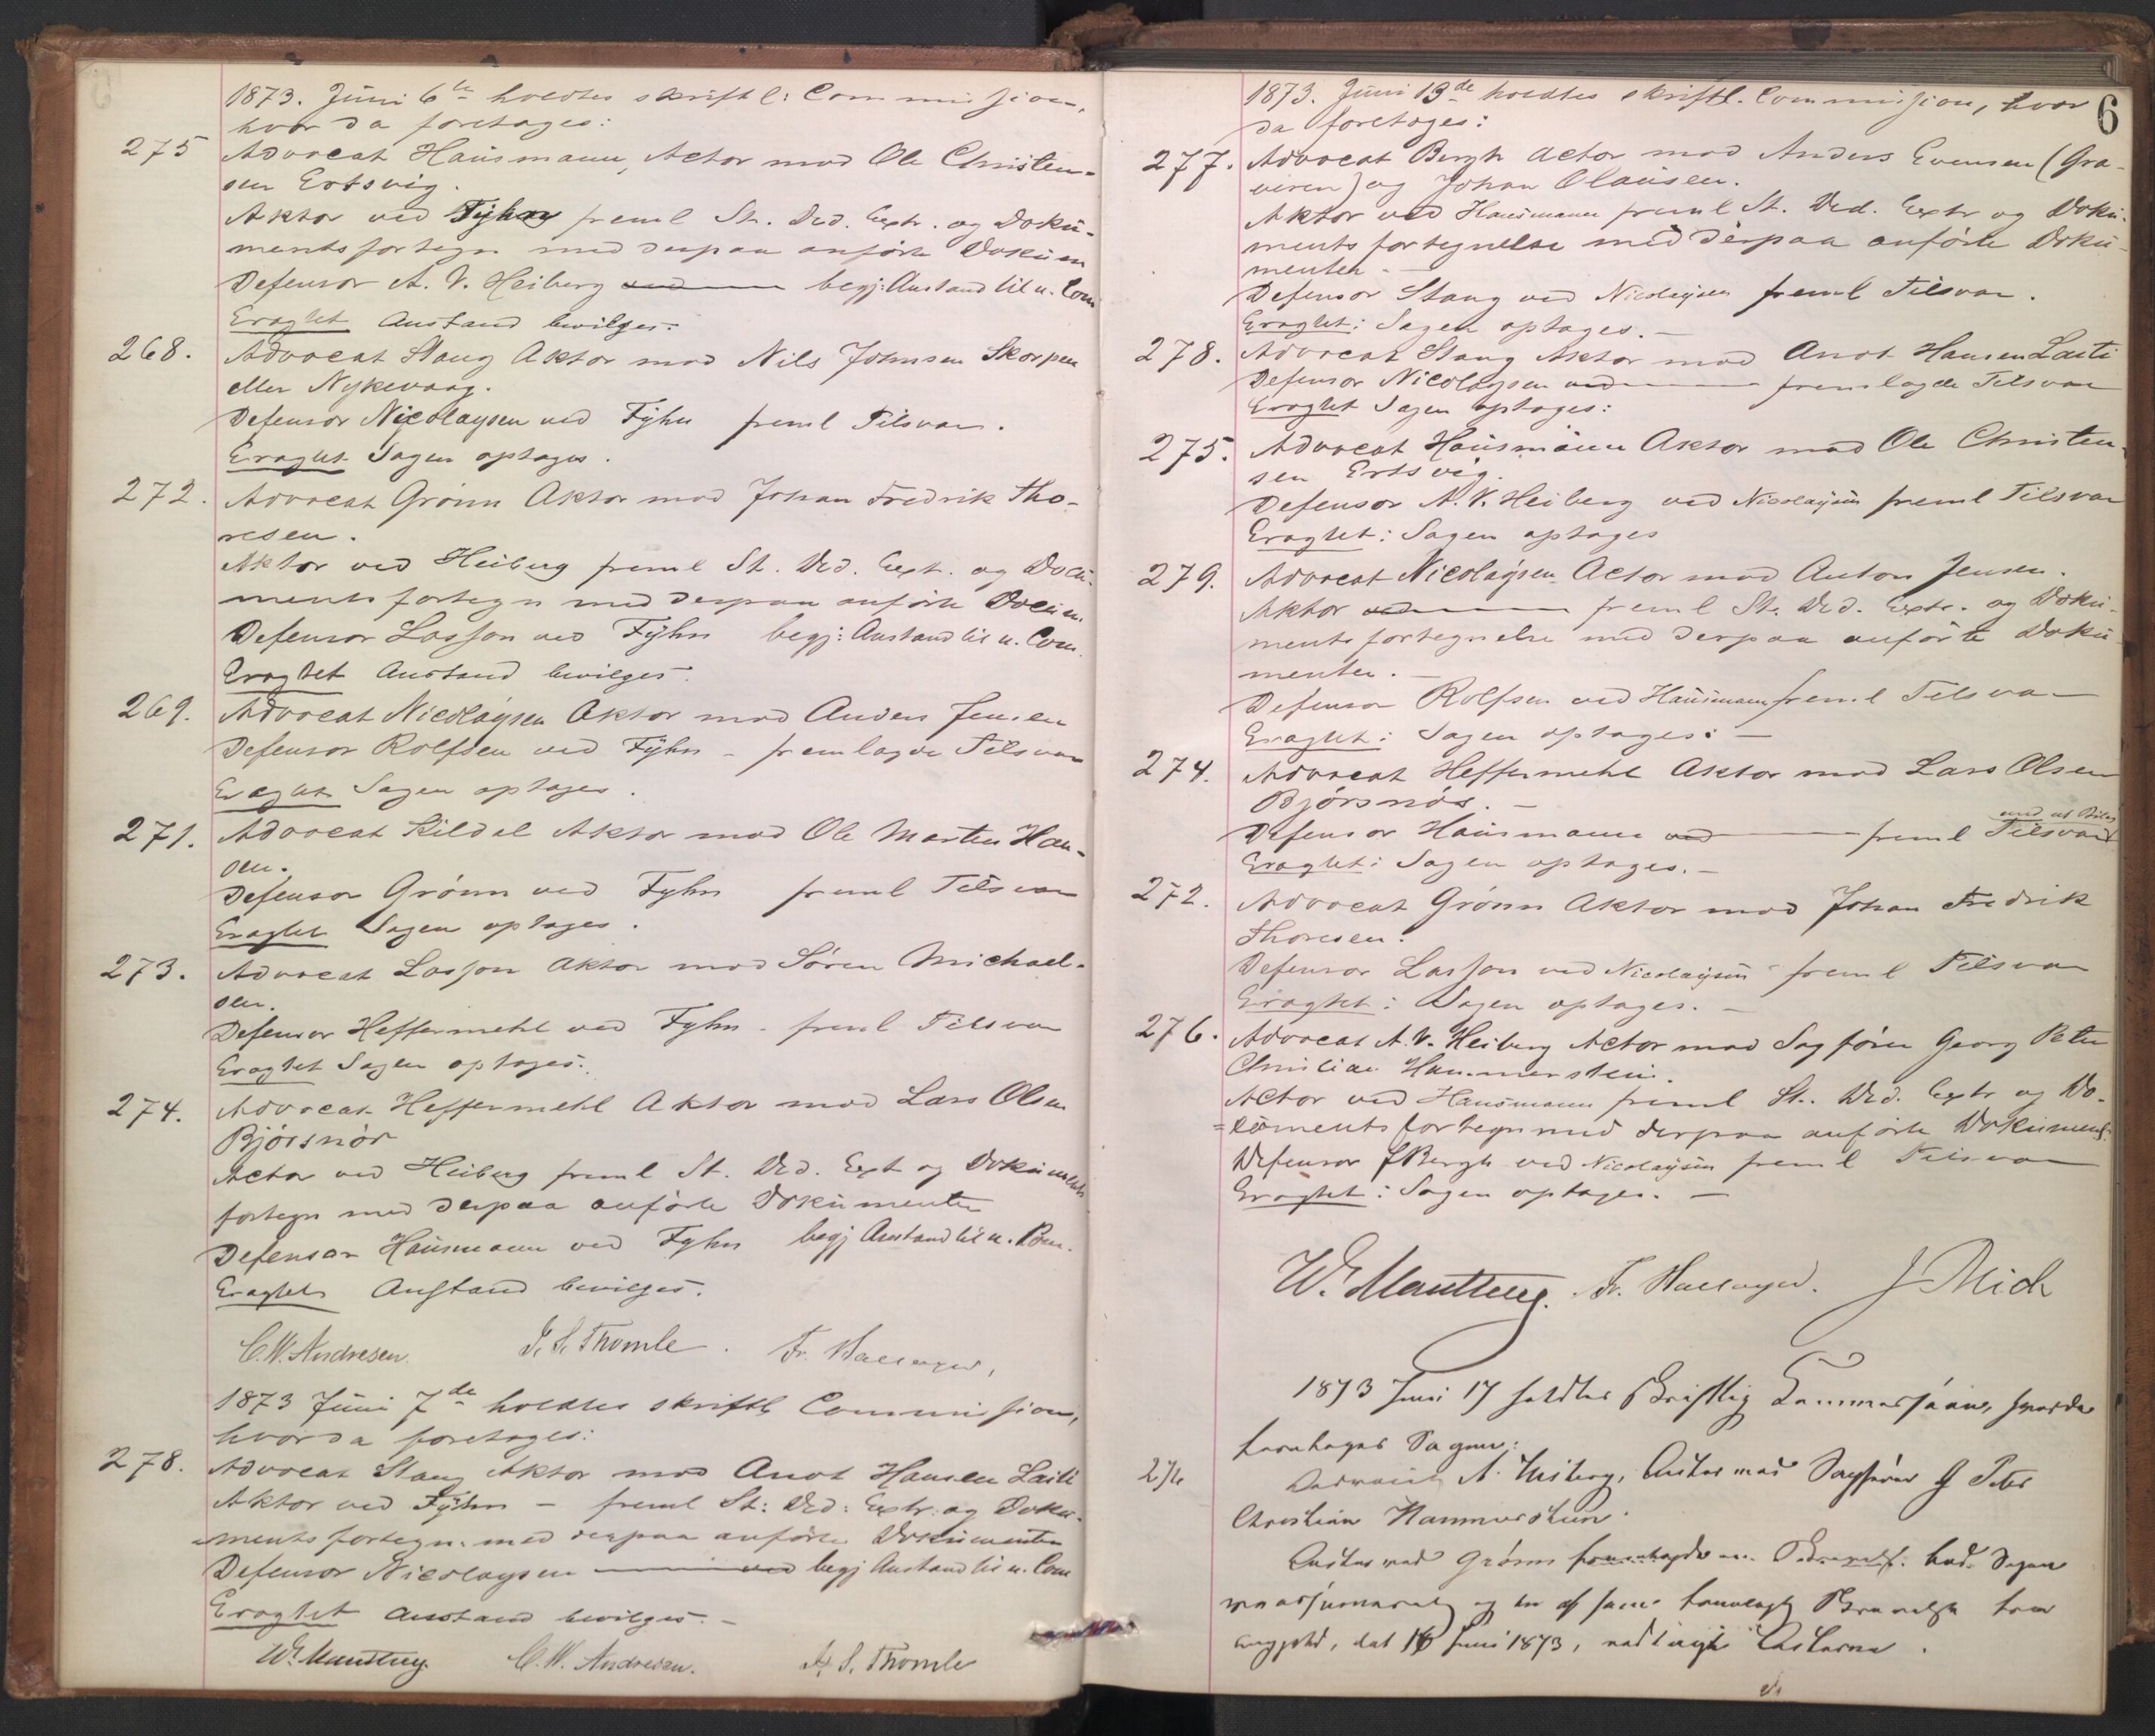 1873. Juni 6te holdtes skriftl: Commission,
hvor da foretoges:
275 Advocat Hausmann, Actor mod Ole Christen-
sen Ertsvig.
Aktor ved Fyhn freml St. Ved. Extr. og Doku-
mentsfortegn med derpaa anførte Dokum
Defensor A. V. Heiberg ved begj: Anstand til n. Com
Eragtet Anstand bevilges.
268. Advocat Stang Aktor mod Nils Johnsen Skorpen
eller Nykevaag.
Defensor Nicolaysen ved Fyhn freml Tilsvar.
Eragtet Sagen optages.
272. Advocat Grønn Aktor mod Johan Fredrik Tho-
resen.
Aktor ved Heiberg freml St. Ved. Extr. og Docu-
mentsfortegn med derpaa anførte Docum.
Defensor Lasson ved Fyhn begj: Anstand til n. Com.
Eragtet Anstand bevilges.
269. Advocat Nicolaysen Aktor mod Anders Jensen
Defensor Rolfsen ved Fyhn - fremlagde Tilsvar
Eragtet Sagen optages.
271. Advocat Kildal Aktor mod Ole Marten Han-
sen.
Defensor Grønn ved Fyhn freml Tilsvar
Eragtet Sagen optages.
273. Advocat Lasson Aktor mod Søren Michael-
sen.
Defensor Heffermehl ved Fyhn - freml Tilsvar
Eragtet Sagen optages.
274. Advocat Heffermehl Aktor mod Lars Olsen
Bjørsnøs
Actor ved Heiberg freml St. Ved. Ext og Dokuments
fortegn med derpaa anførte Dokumenter
Defensor Hausmann ved Fyhn begj Anstand til n. Com.
Eragtet Anstand bevilges.
C. W. Andresen. J. S. Thomle. Fr. Hallager,
1873 Juni 7de holdtes skriftl Commission,
hvor da foretoges:
278. Advocat Stang Aktor mod Anot Hansen Laiti
Aktor ved Fyhn - freml St: Ved: Extr. og Doku-
mentsfortegn. med derpaa anførte Dokumenter
Defensor Nicolaysen ved begj Anstand til n. Com
Eragtet Anstand bevilges. -
C. W. Andresen. J. S. Thomle
6
1873. Juni 13de holdtes skriftl. Commission, hvor
da foretoges:
277. Advocat Bergh Actor mod Anders Evensen (Gra-
veren) og Johan Olausen.
Aktor ved Hausmann freml St. Ved. Extr og Doku-
mentsfortegnelse med derpaa anførte Doku-
menter. -
Defensor Stang ved Nicolaysen freml Tilsvar.
Eragtet: Sagen optages. -
278. Advocat Stang Aktor mod Anot Hansen Laiti
Defensor Nicolaysen ved fremlagde Tilsvar
Eragtet Sagen optages:
275. Advocat Hausmann Aktor mod Ole Christen-
sen Ertsvig.
Defensor A. V. Heiberg ved Nicolaysen freml Tilsvar
Eragtet: Sagen optages
279. Advocat Nicolaysen Actor mod Anton Jensen.
Aktor ved freml St. Ved. Extr. og Doku-
mentsfortegnelse med derpaa anførte Doku-
menter. -
Defensor Rolfsen ved Hausmann freml Tilsvar
Eragtet: Sagen optages: -
274. Advocat Heffermehl Aktor mod Lars Olsen
Bjørsnøs. -
med et Bilag
Defensor Hausmann ved freml Tilsvar
Eragtet: Sagen optages. -
272. Advocat Grønn Aktor mod Johan Fredrik
Thoresen.
Defensor Lasson ved Nicolaysen freml Tilsvar
Eragtet: Sagen optages. -
276. Advocat A. V. Heiberg Actor mod Sagfører Georg Peter
Christian Hammerstein.
Actor ved Hausmann freml St. Ved. Extr og Do-
kumentsfortegn med derpaa anførte Dokument.
Defensor Bergh ved Nicolaysen freml Tilsvar
Eragtet: Sagen optages. -
Fr. Hallager. J Mich
1873 Juni 17 holdtes Skriftlig Commission, hvorda
foretoges Sagen:
276 Advocat A. Heiberg, Actor mod Sagfører G Peter
Christian Hammerstein.
Actor ved Grønn fremlagde Sagen
og en af fremlagt Skrivelse fra
dat 16 Juni 1873,